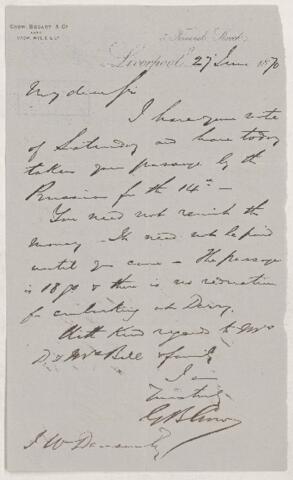 CROW, BOGART & Co
LATE
CROW, WYLE & Co
Liverpool 27 June 1870
My dear Sir
I have your note
of Saturday and have today
taken your passage by the
Prussian for the 14th —
You need not remit the
money - It need not be paid
until you come - The passage
is 18/90 & there is no reduction
for embarking at Derry.
With kind regards to Mrs
D. & Mrs Bell & family
I am
Yours truly
G B Crow
J W Dawson